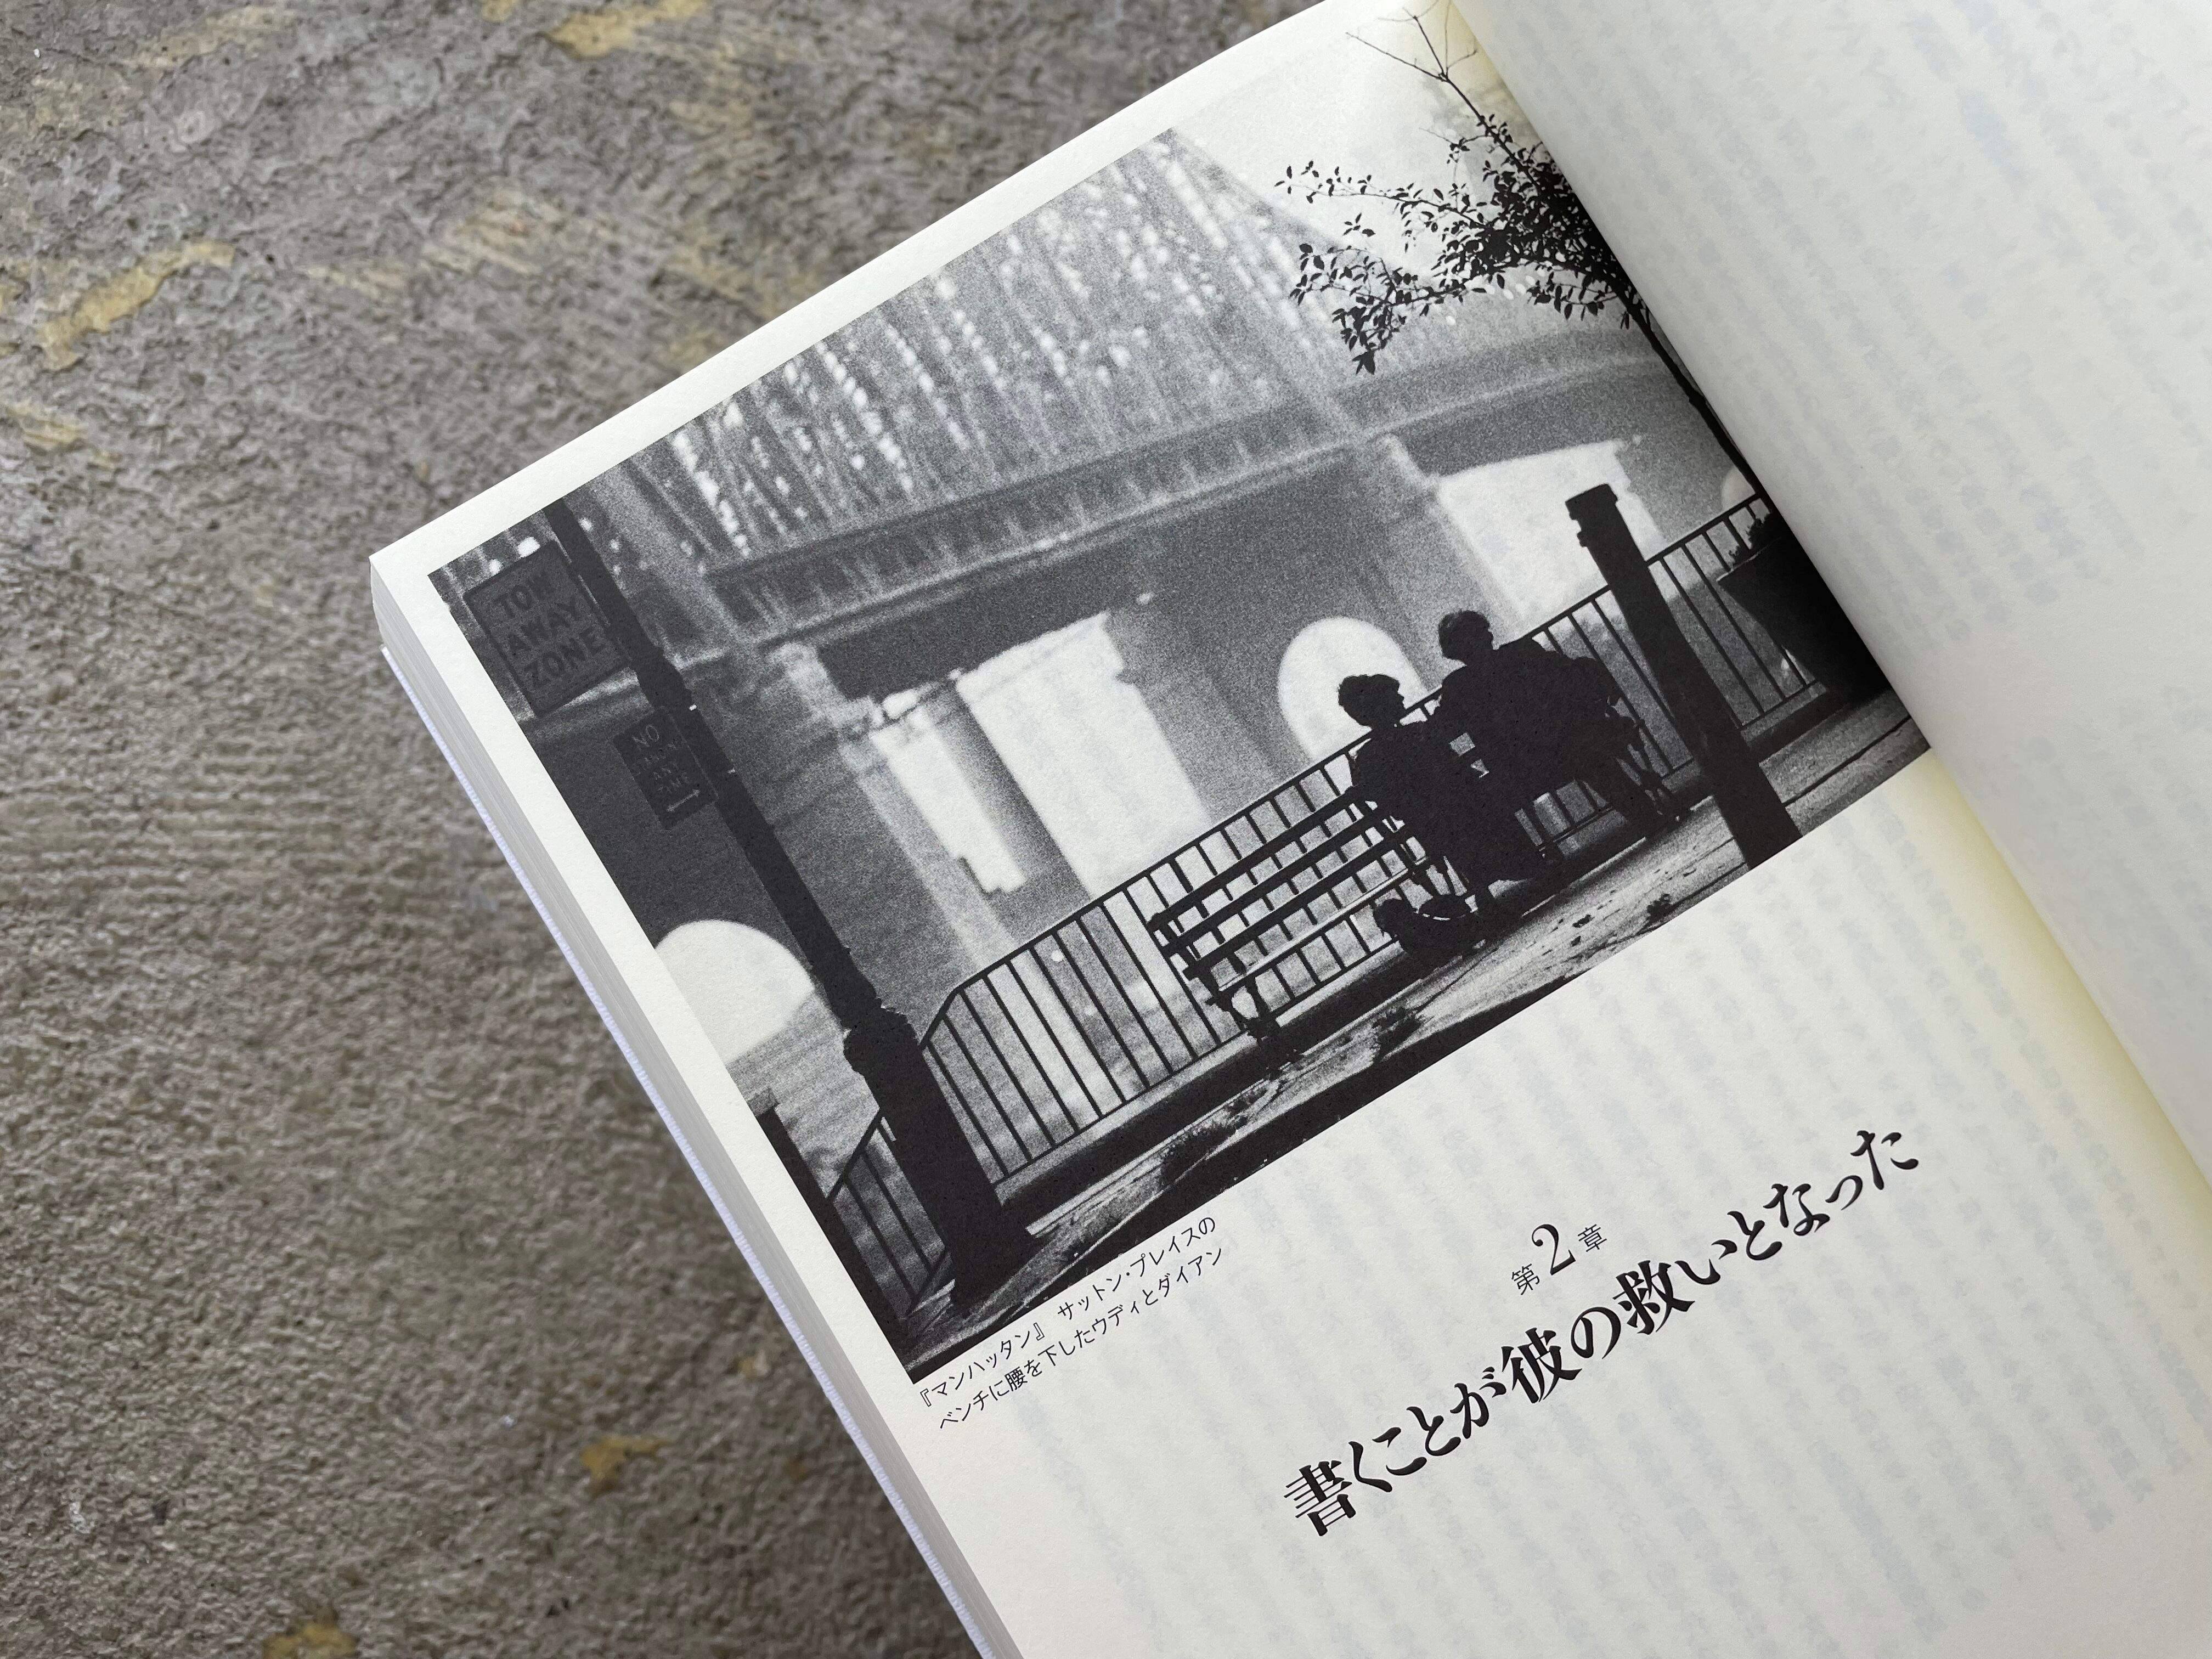 TOW
AWAY
ZONE
NO
『マンハッタン』 サットン・プレイスの
ベンチに腰を下したウディとダイアン
第2章
書くことが彼の救いとなった